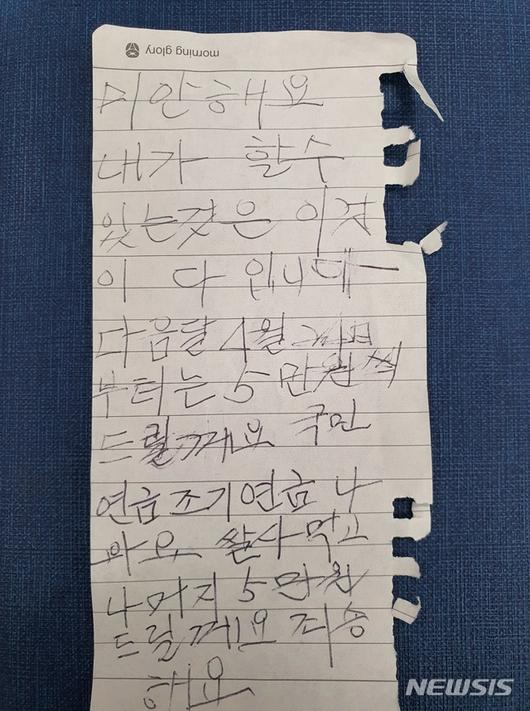 morning glory
미안해요
내가 할수
있는것은 이것
이 다 입니다
다음달 1월
부터는 5만원씩
드릴께요 국민
연금조기연금 나
와요 쌀사 먹고
나머지 5만원
드릴께요 죄송
해요
NEWSIS